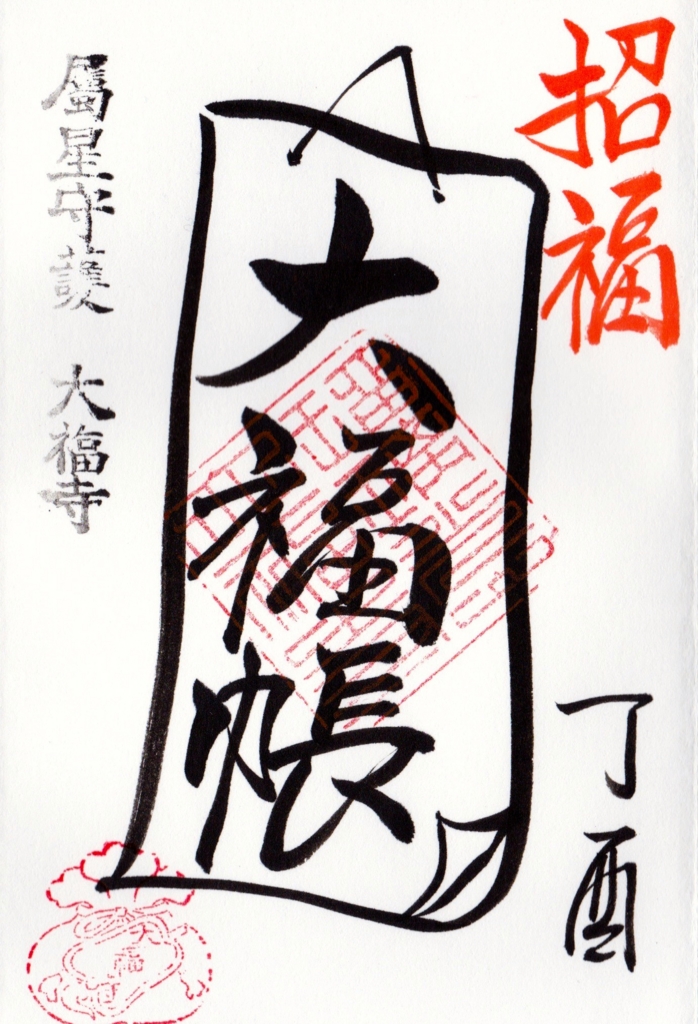 招福
丁酉
大福帳
屬星守護 大福寺
大福